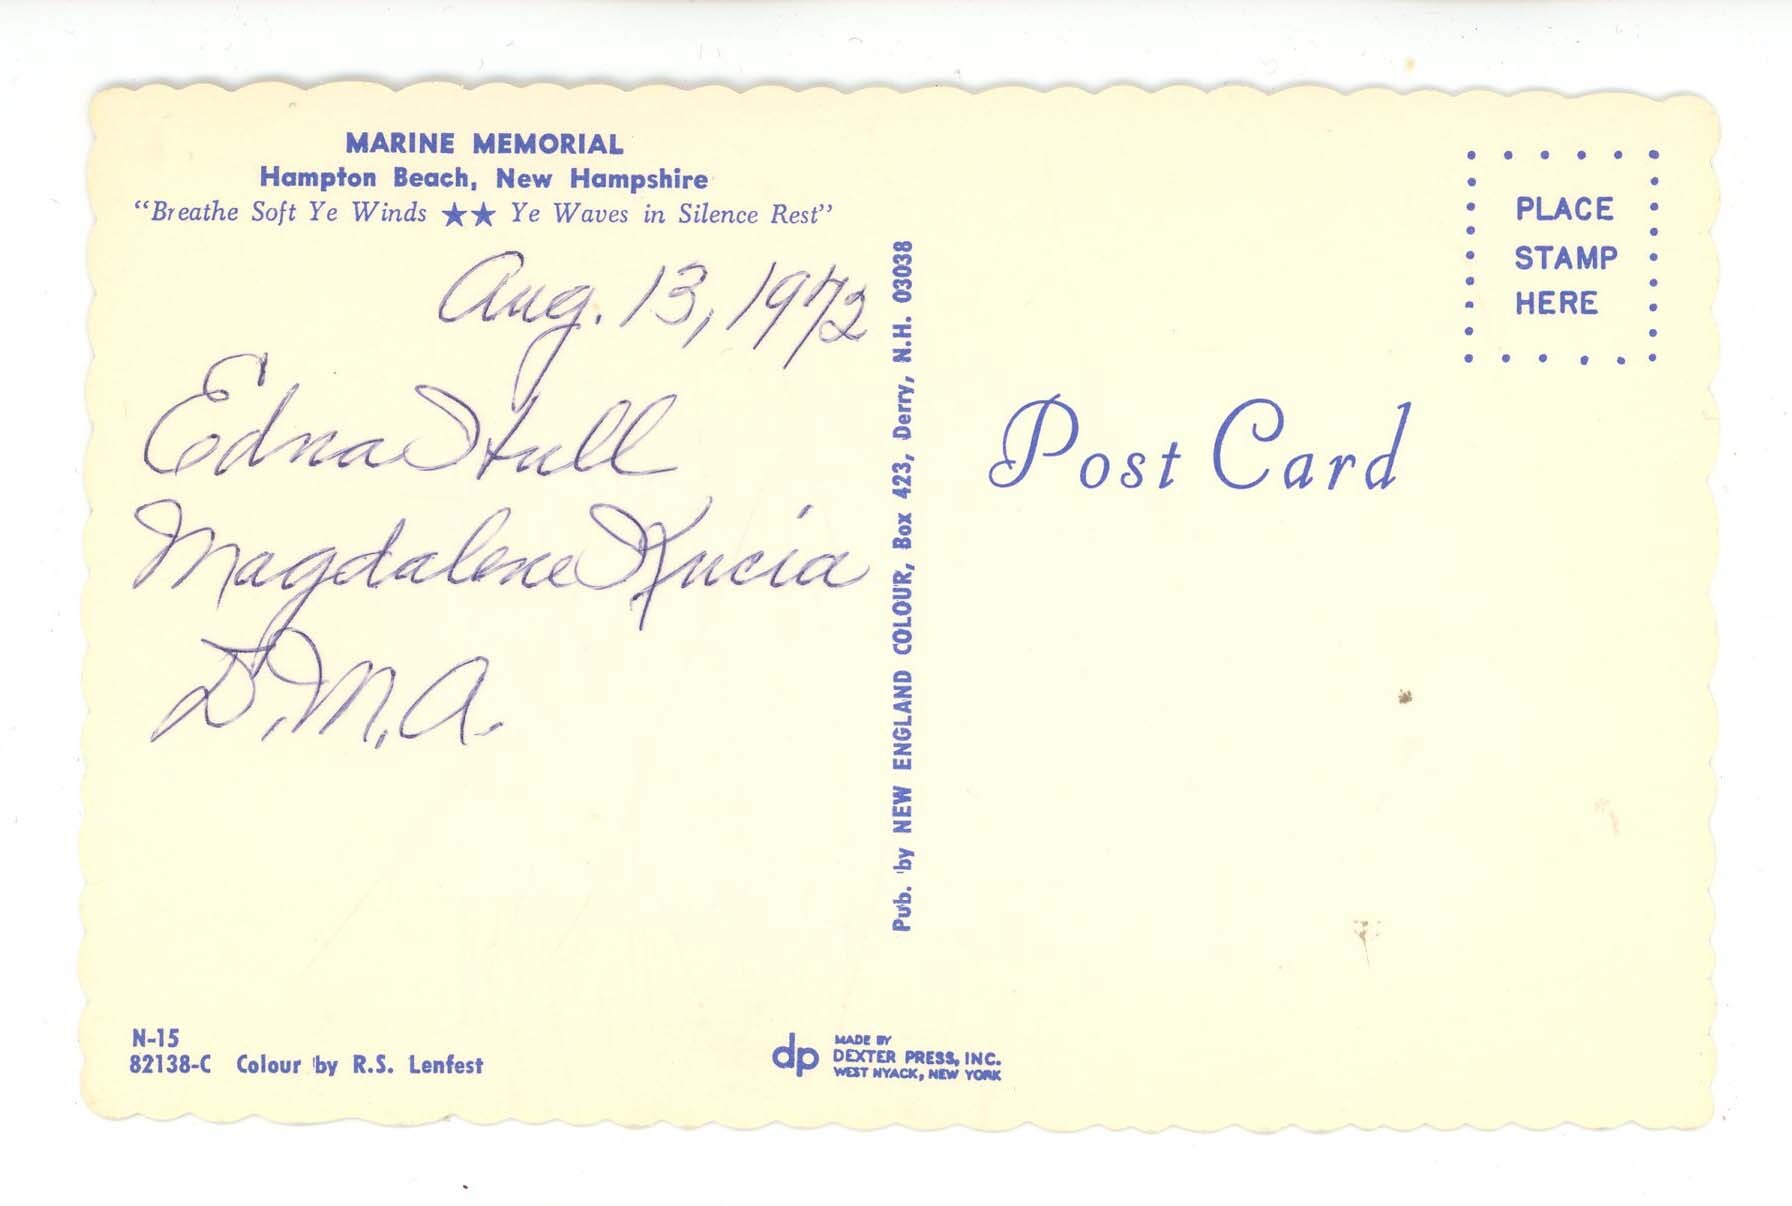 MARINE MEMORIAL
Hampton Beach, New Hampshire
“Breathe Soft Ye Winds ★★ Ye Waves in Silence Rest”
Aug. 13, 1972
Edna Stull
Magdalene Kucia
D.M.A.
N-15
82138-C Colour by R.S. Lenfest
Pub. by NEW ENGLAND COLOUR, Box 423, Derry, N.H. 03038
dp
MADE BY
DEXTER PRESS, INC.
WEST NYACK, NEW YORK
PLACE
STAMP
HERE
Post Card